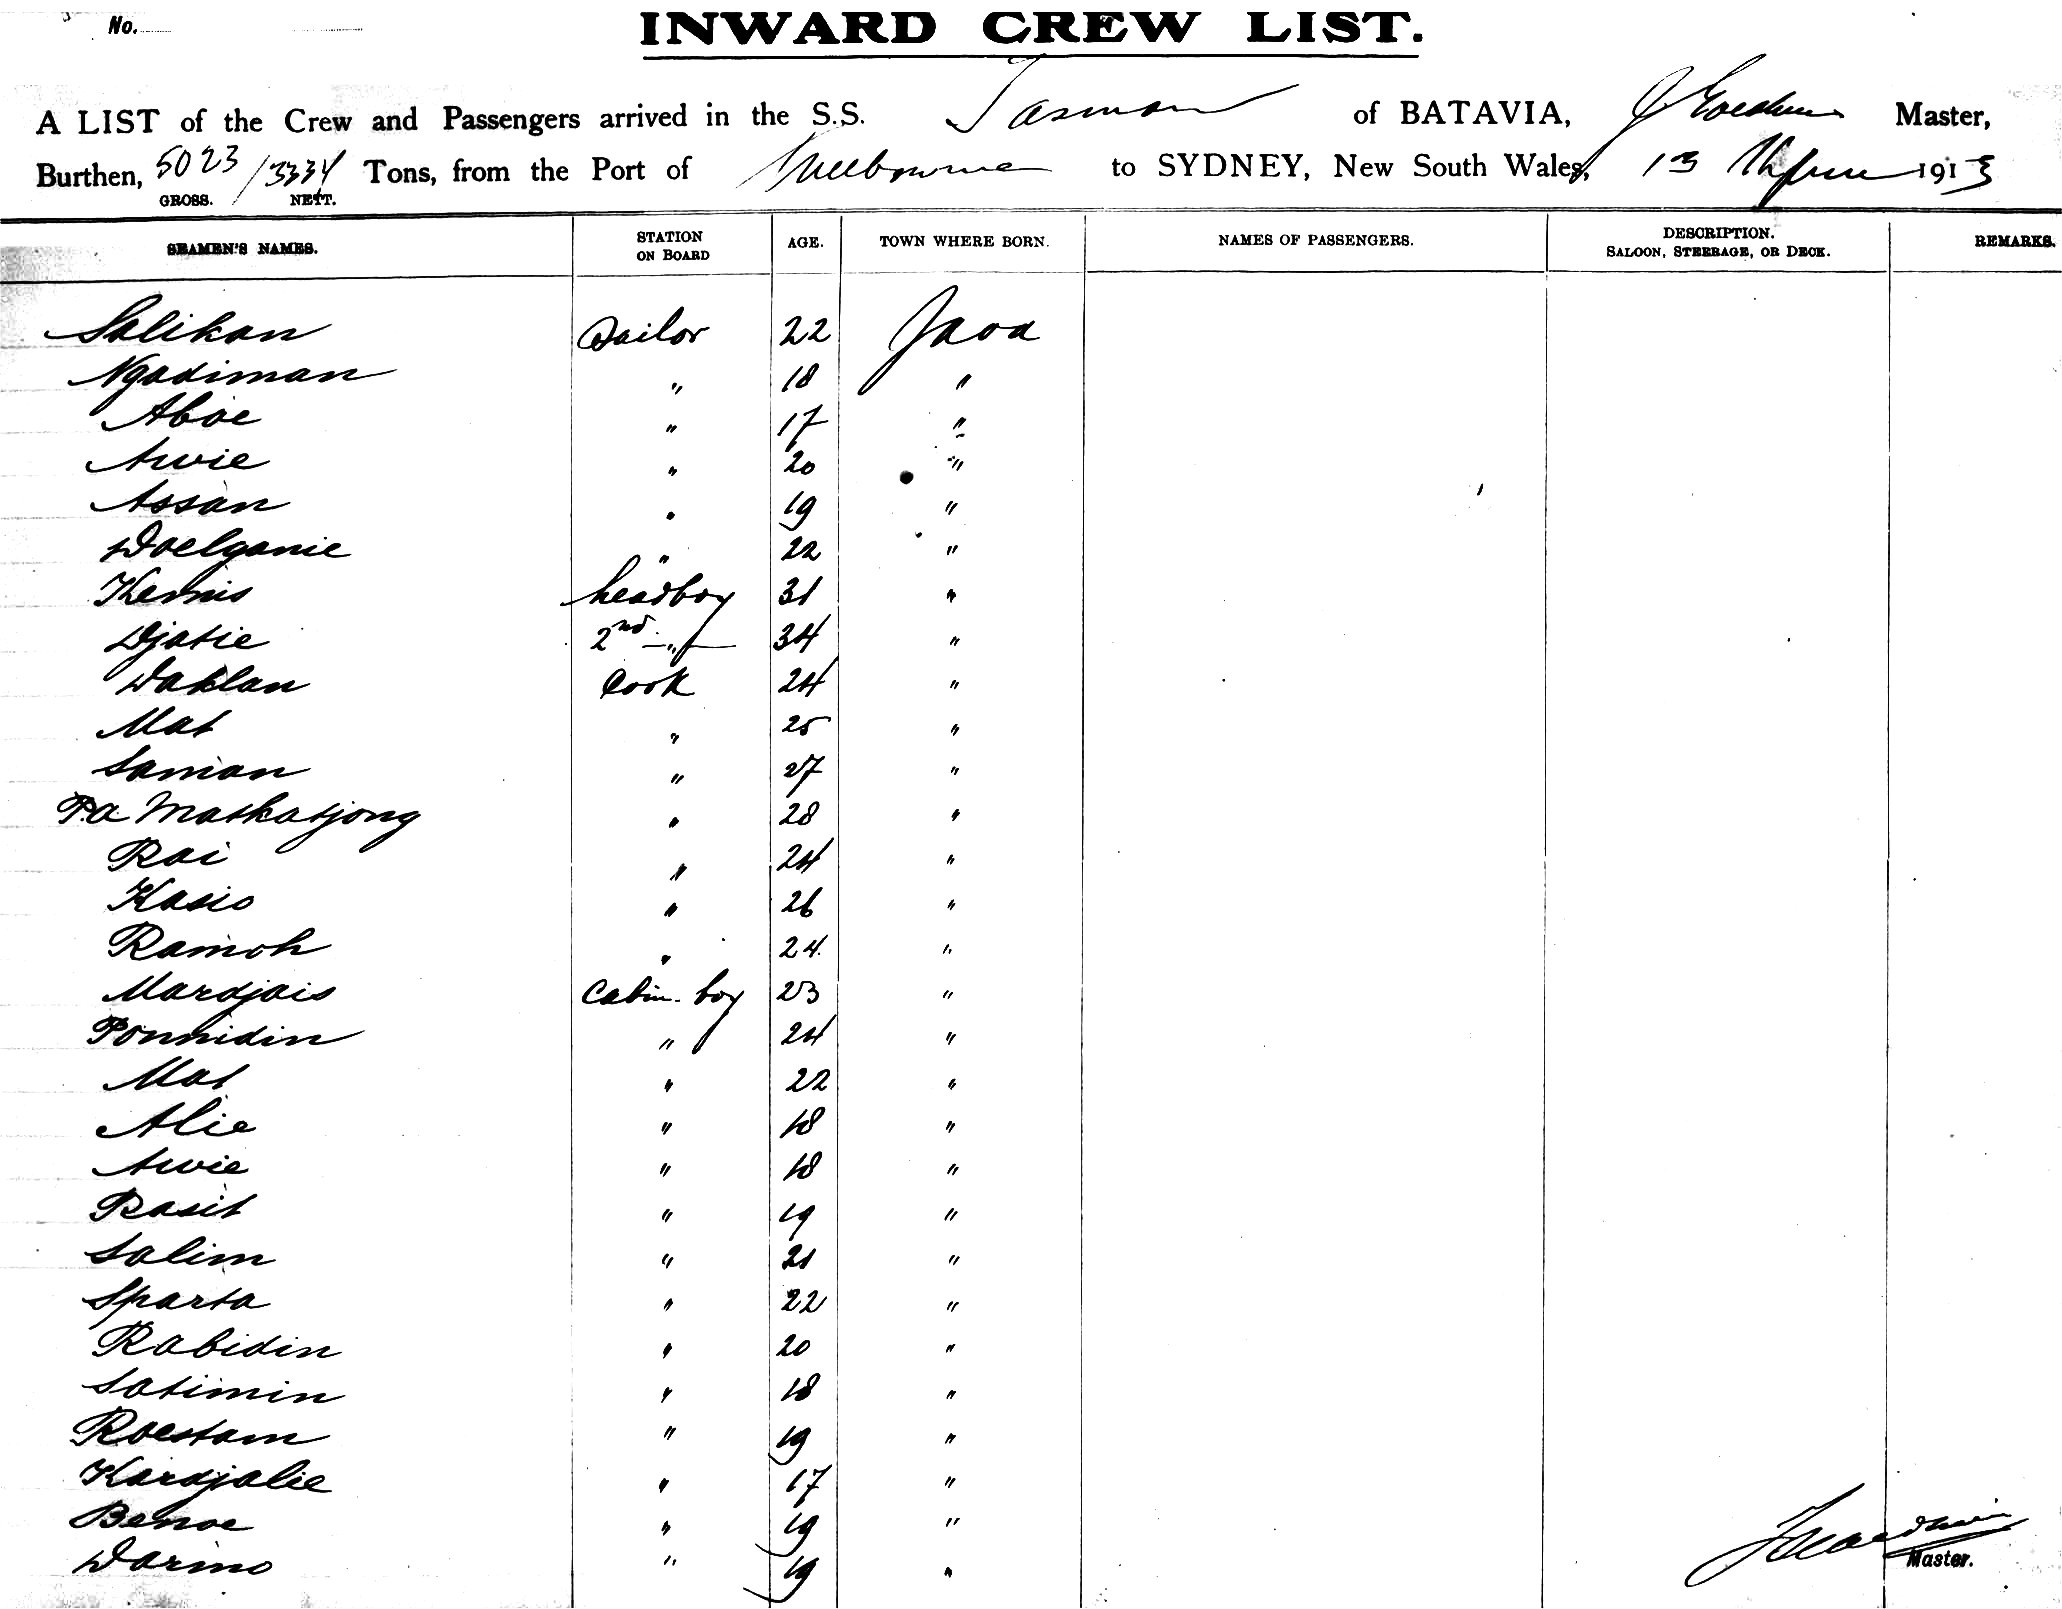 No.
INWARD CREW LIST.
A LIST of the Crew and Passengers arrived in the S.S. Tasman of BATAVIA, Master,
Burthen, 5023 / 3334 Tons, from the Port of Melbourne to SYDNEY, New South Wales, 13 1913
GROSS. NETT.
SEAMEN'S NAMES. STATION ON BOARD AGE. TOWN WHERE BORN. NAMES OF PASSENGERS. DESCRIPTION. SALOON, STEERAGE, OR DECK. REMARKS.
Salikan Sailor 22 Java
Ngadiman " 18 "
Aboe " 17 "
Awie " 20 "
Assan " 19 "
Doelganie " 22 "
Kemis headboy 31 "
Djatie 2nd " 34 "
Dahlan Cook 24 "
Mat " 25 "
Saman " 27 "
Pa Maskatjong " 28 "
Rai " 24 "
Kasio " 26 "
Ramoh " 24 "
Mardjais Cabin-boy 23 "
Ponnidin " 24 "
Mat " 22 "
Alie " 18 "
Awie " 18 "
Rasit " 19 "
Salim " 21 "
Sparta " 22 "
Rabidin " 20 "
Satimin " 18 "
Roestam " 19 "
Kardjalie " 17 "
Benoe " 19 "
Darimo " 19 "
Master.